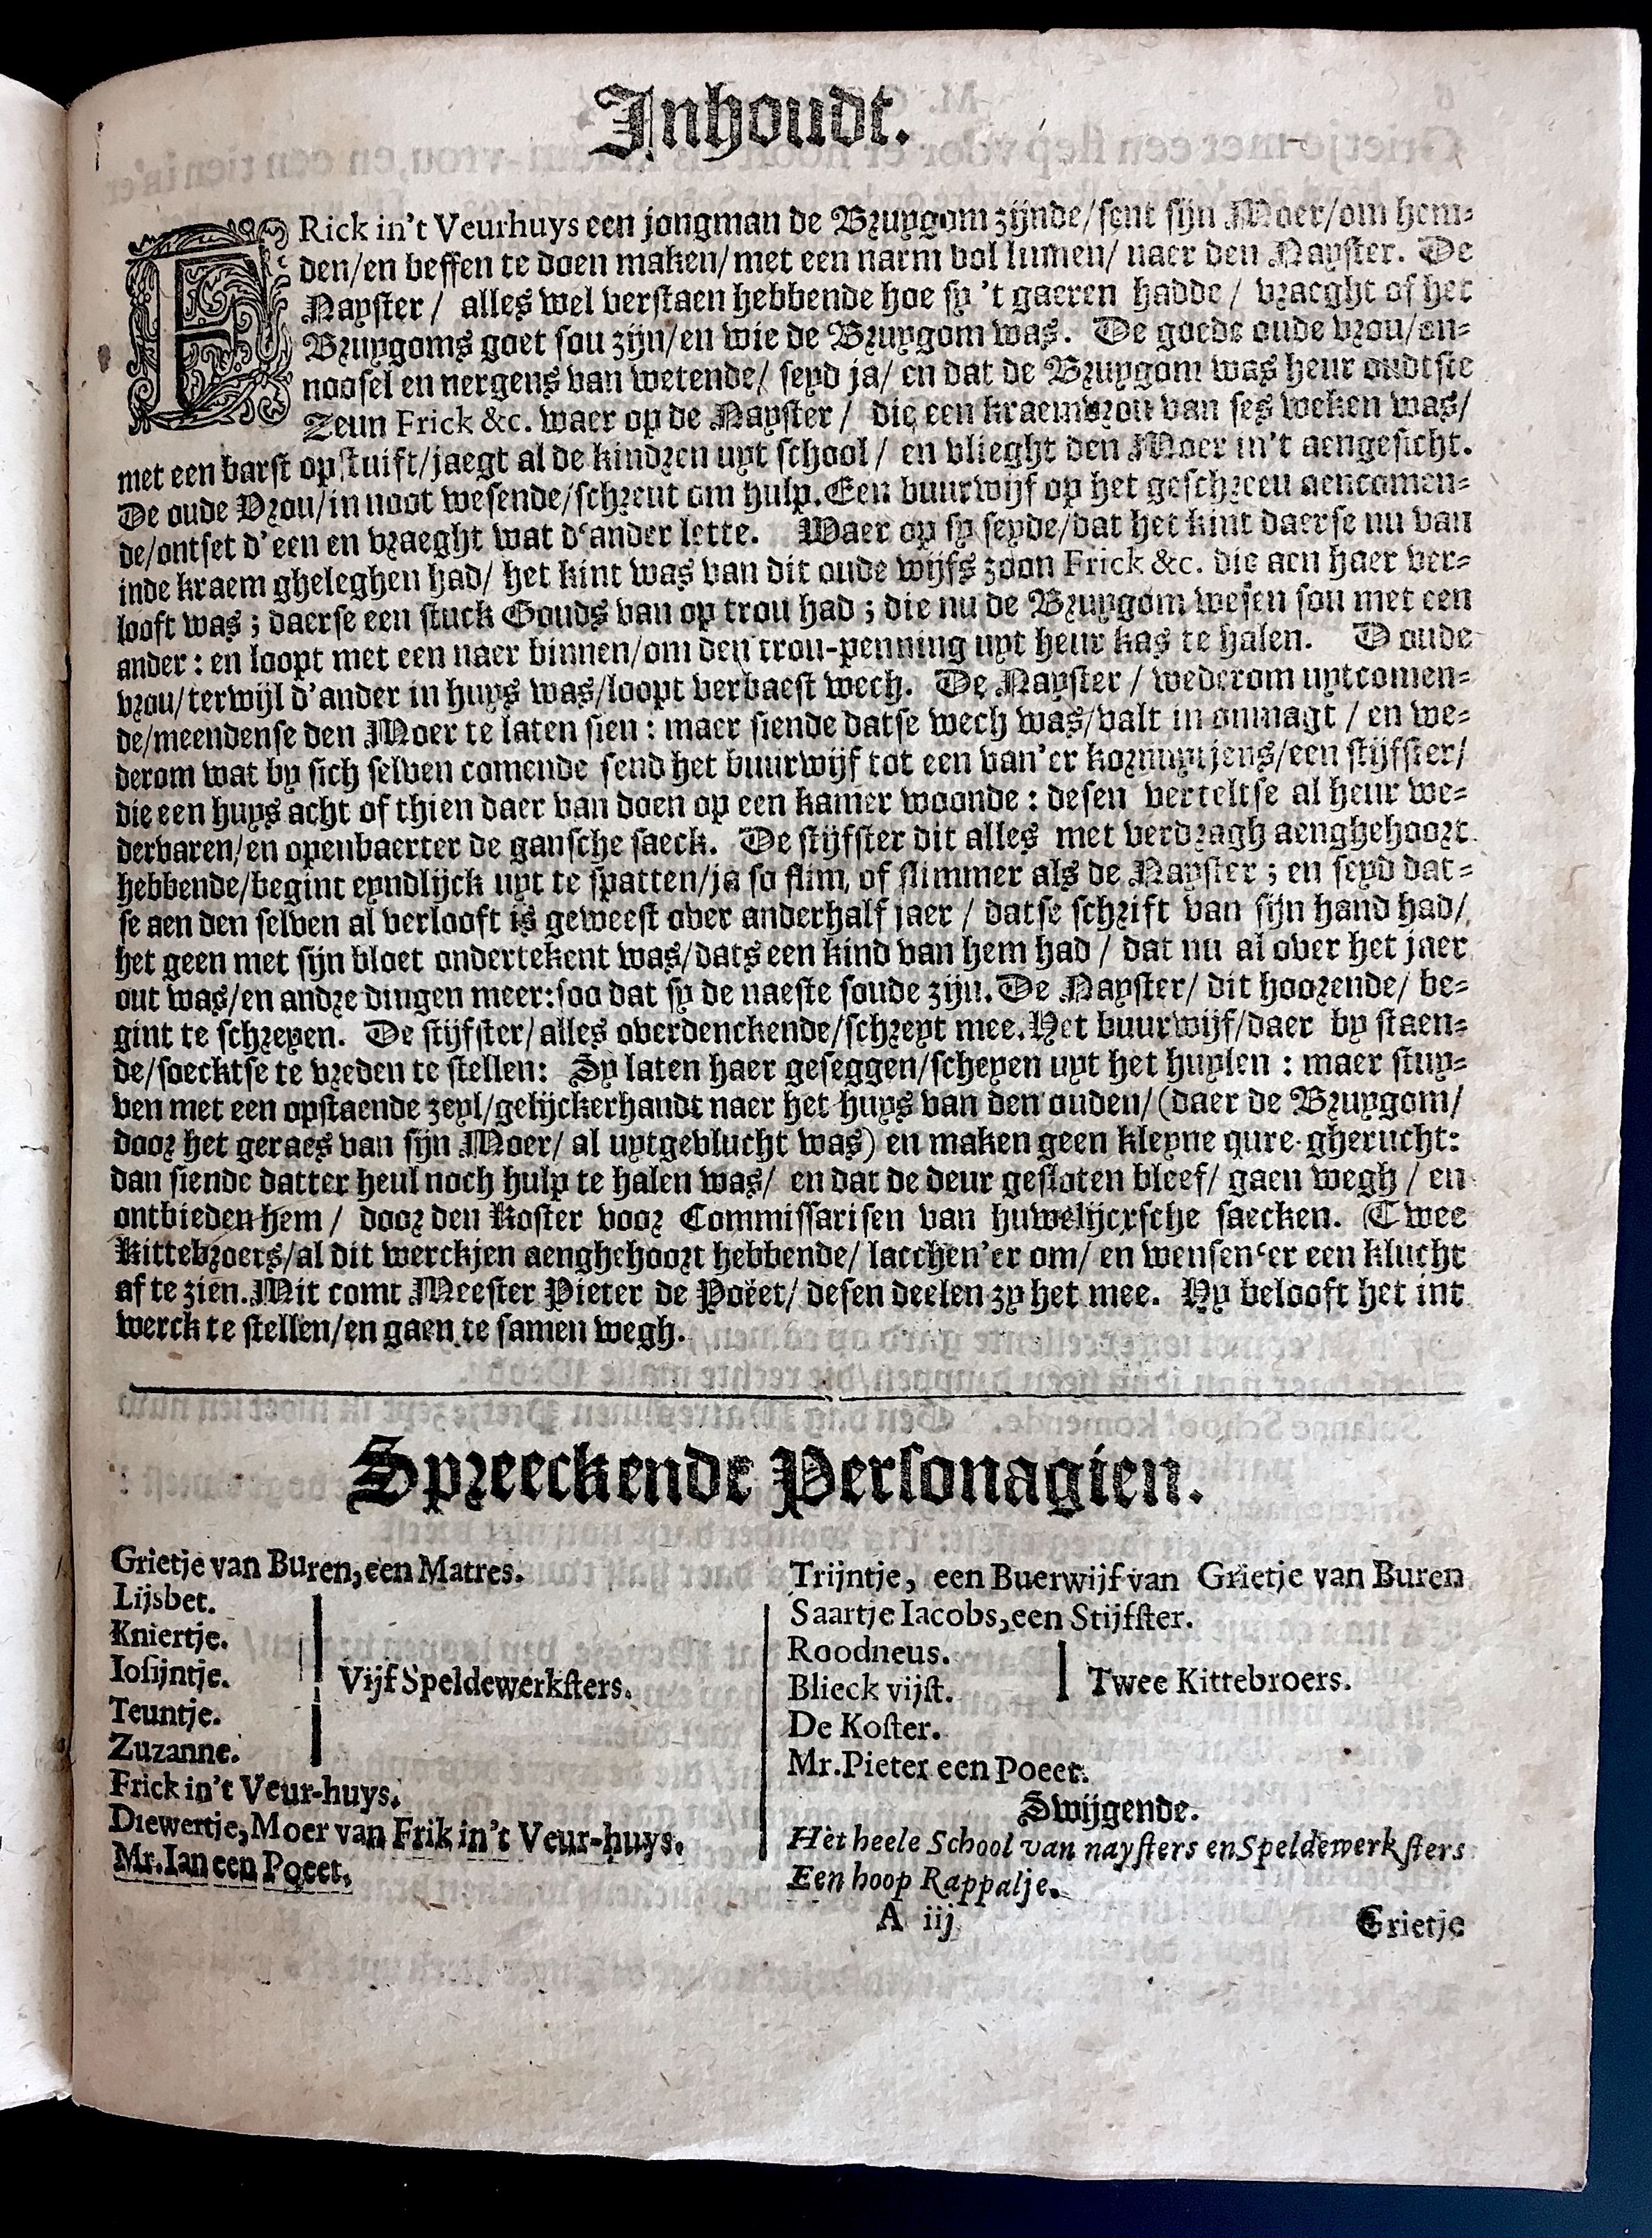 Inhoudt.
FRick in't Veurhuys een jongman de Bruygom zijnde/sent sijn Moer/om hem-
den/en beffen te doen maken/met een narm vol lumen/ naer den Nayster. De
Nayster / alles wel verstaen hebbende hoe sy 't gaeren hadde / vraeght of het
Bruygoms goet sou zijn/en wie de Bruygom was. De goede oude vrou/on-
noosel en nergens van wetende/ seyd ja/ en dat de Bruygom was heur oudtste
Zeun Frick &c. waer op de Nayster / die een kraemvrou van ses weken was/
met een barst opstuift/jaegt al de kindren uyt school / en vlieght den Moer in't aengesicht.
De oude Vrou/in noot wesende/schreut om hulp. Een buurwijf op het geschreeu aencomen-
de/ontset d'een en vraeght wat d'ander lette. Waer op sy seyde/dat het kint daerse nu van
inde kraem gheleghen had/ het kint was van dit oude wijfs zoon Frick &c. die aen haer ver-
looft was ; daerse een stuck Gouds van op trou had ; die nu de Bruygom wesen sou met een
ander : en loopt met een naer binnen/om den trou-penning uyt heur kas te halen. D oude
vrou/terwijl d'ander in huys was/loopt verbaest wech. De Nayster / wederom uytcomen-
de/meendense den Moer te laten sien : maer siende datse wech was/valt in onmagt / en we-
derom wat by sich selven comende send het buurwijf tot een van'er kornuytjens/een stijfster/
die een huys acht of thien daer van doen op een kamer woonde : desen verteltse al heur we-
dervaren/en openbaerter de gansche saeck. De stijfster dit alles met verdragh aenghehoort
hebbende/begint eyndlijck uyt te spatten/ja so slim, of slimmer als de Nayster ; en seyd dat-
se aen den selven al verlooft is geweest over anderhalf jaer / datse schrift van sijn hand had/
het geen met sijn bloet ondertekent was/dats een kind van hem had / dat nu al over het jaer
out was/en andre dingen meer:soo dat sy de naeste soude zijn. De Nayster/ dit hoorende/ be-
gint te schreyen. De stijfster/ alles overdenckende/schreyt mee. Het buurwijf/daer by staen-
de/soecktse te vreden te stellen: Sy laten haer geseggen/scheyen uyt het huylen : maer stuy-
ven met een opstaende zeyl/gelijckerhandt naer het huys van den ouden/(daer de Bruygom/
door het geraes van sijn Moer/ al uytgevlucht was) en maken geen kleyne qure gherucht:
dan siende datter heul noch hulp te halen was/ en dat de deur gesloten bleef/ gaen wegh / en
ontbieden hem / door den Koster voor Commissarisen van huwelijcxsche saecken. (Twee
Kittebroers/al dit werckjen aenghehoort hebbende/ lacchen'er om/ en wensen'er een klucht
af te zien. Mit comt Meester Pieter de Poëet/ desen deelen zy het mee. Hy belooft het int
werck te stellen/en gaen te samen wegh.
Spreeckende Personagien.
Grietje van Buren, een Matres.
Lijsbet.
Kniertje.
Iosijntje.
Vijf Speldewerksters.
Teuntje.
Zuzanne.
Frick in't Veur-huys.
Diewertje, Moer van Frik in't Veur-huys.
Mr. Ian een Poeet.
Trijntje, een Buerwijf van Grietje van Buren
Saartje Iacobs, een Stijfster.
Roodneus.
Twee Kittebroers.
Blieck vijst.
De Koster.
Mr. Pieter een Poeet.
Swijgende.
Het heele School van naysters en Speldewerksters
Een hoop Rappalje.
A iij
Grietje